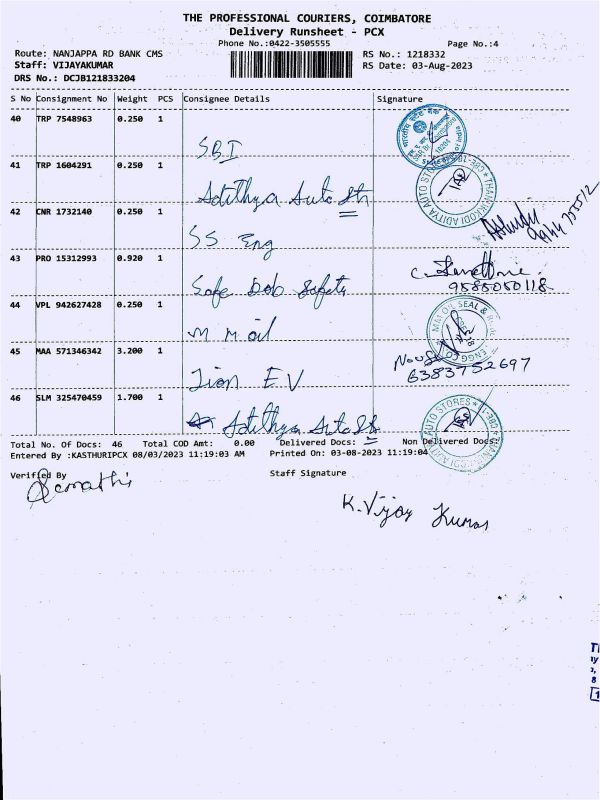 THE PROFESSIONAL COURIERS, COIMBATORE
Delivery Runsheet - PCX
Phone No.:0422-3505555 Page No.:4
Route: NANJAPPA RD BANK CMS RS No.: 1218332
Staff: VIJAYAKUMAR RS Date: 03-Aug-2023
DRS No.: DCJB121833204
S No Consignment No Weight PCS Consignee Details Signature
40 TRP 7548963 0.250 1
SBI
41 TRP 1604291 0.250 1
Adithya Auto Str
42 CNR 1732140 0.250 1
SS Eng
43 PRO 15312993 0.920 1
Safe Safety
9585050118
44 VPL 942627428 0.250 1
M M oil
45 MAA 571346342 3.200 1
6383752697
E V
46 SLM 325470459 1.700 1
Adithya Auto Str
Total No. Of Docs: 46 Total COD Amt: 0.00 Delivered Docs: Non Delivered Docs:
Entered By :KASTHURIPCX 08/03/2023 11:19:03 AM Printed On: 03-08-2023 11:19:04
Verified By Staff Signature
K. Vijay Kumar